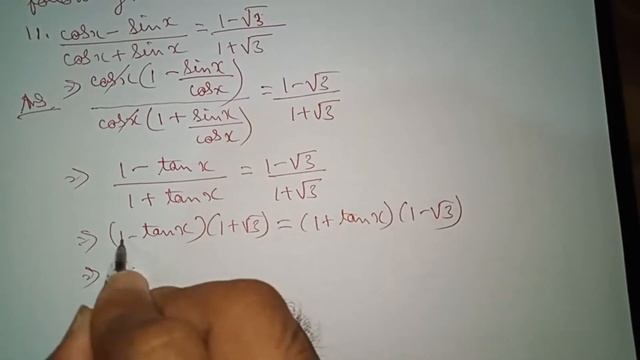 11. cosx - sinx / cosx + sinx = 1-√3 / 1+√3
Ans. ⇒ cosx(1 - sinx/cosx) / cosx(1 + sinx/cosx) = 1-√3 / 1+√3
⇒ 1 - tanx / 1 + tanx = 1-√3 / 1+√3
⇒ (1 - tanx)(1+√3) = (1+tanx)(1-√3)
⇒